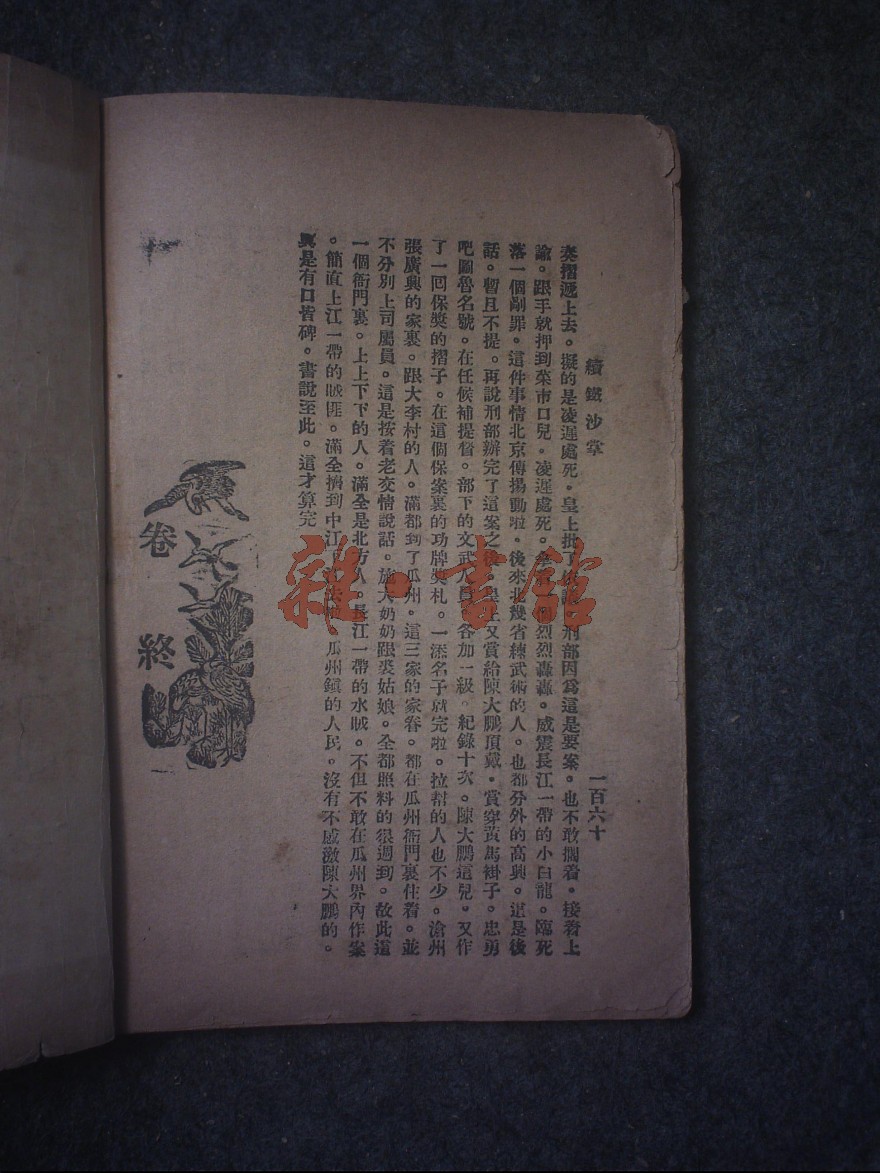 續鐵沙掌
一百六十
奏摺遞上去。擬的是凌遲處死。皇上批了。刑部因爲這是要案。也不敢擱着。接着上
諭。跟手就押到菜市口兒。凌遲處死。烈烈轟轟。威震長江一帶的小白龍。臨死
落一個剮罪。這件事情北京傳揚動啦。後來北幾省練武術的人。也都分外的高興。這是後
話。暫且不提。再說刑部辦完了這案之後。皇上又賞給陳大鵬頂戴。賞穿黃馬褂子。忠勇
吧圖魯名號。在任候補提督。部下的文武各加一級。紀錄十次。陳大鵬這兒。又作
了一回保獎的摺子。在這個保案裏的功牌獎札。一添名子就完啦。拉幫的人也不少。滄州
張廣興的家裏。跟大李村的人。滿都到了瓜州。這三家的家眷。都在瓜州衙門裏住着。並
不分別上司屬員。這是按着老交情說話。施大奶奶跟裘姑娘。全都照料的很週到。故此這
一個衙門裏。上上下下的人。滿全是北方人。長江一帶的水賊。不但不敢在瓜州界內作案
。簡直上江一帶的賊匪。滿全擠到中江下瓜州鎮的人民。沒有不感激陳大鵬的。
眞是有口皆碑。書說至此。這才算完
卷終
雜·書館